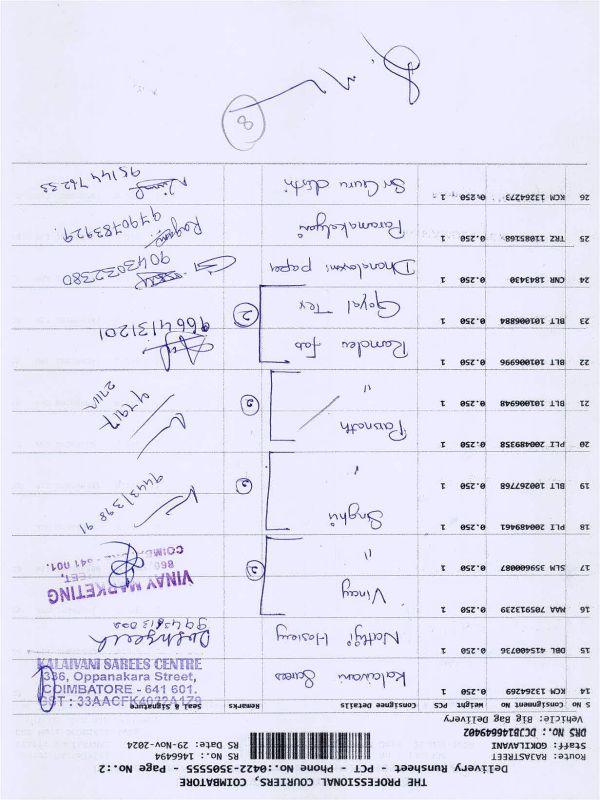 THE PROFESSIONAL COURIERS, COIMBATORE
Delivery Runsheet - PCT - Phone No.:0422-3505555 - Page No.:2
Route: RAJASTREET
Staff: GOKILAVANI
DRS NO.: DCJB1466649402
Vehicle: Big Bag Delivery
RS No.: 1466494
RS Date: 29-Nov-2024
S No Consignment No Weight PCS Consignee Details Remarks Seal & Signature
14 KCM 13264269 0.250 1 Kalaivani Sarees
KALAIVANI SAREES CENTRE
336, Oppanakara Street,
COIMBATORE - 641 601.
GST : 33AACFK4032A1Z9
15 DBL 415400736 0.250 1
16 MAA 705913239 0.250 1 Vinay 2
VINAY MARKETING
17 SLM 350600087 0.250 1 "
18 PLI 200489461 0.250 1 Snghii 2
19 BLT 100267768 0.250 1 "
20 PLI 200489358 0.250 1 Parsnath 2
21 BLT 101006948 0.250 1 "
22 BLT 101006996 0.250 1 Ramdev fab 2
9664131201
23 BLT 101006884 0.250 1 Goyal Tex
24 CNR 1843430 0.250 1 Dhanalaxmi paper 9043032380
25 TRZ 11085168 0.250 1 Paramakalyani 9790783929
26 KCM 13264273 0.250 1 Sri Guru disti
8